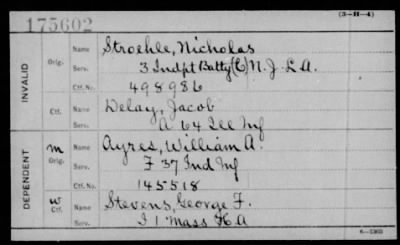 175602
(3—H—4)
INVALID
Orig.
Name Stroehle, Nicholas
Serv. 3 Indpt Batty (C) N. J. L A.
Ctf. No. 498986
Ctf.
Name Delay, Jacob
Serv. A 64 Ill Inf
DEPENDENT
m
Orig.
Name Ayres, William A.
Serv. F 37 Ind Inf
Ctf. No. 145518
w
Ctf.
Name Stevens, George F.
Serv. I 1 Mass H A